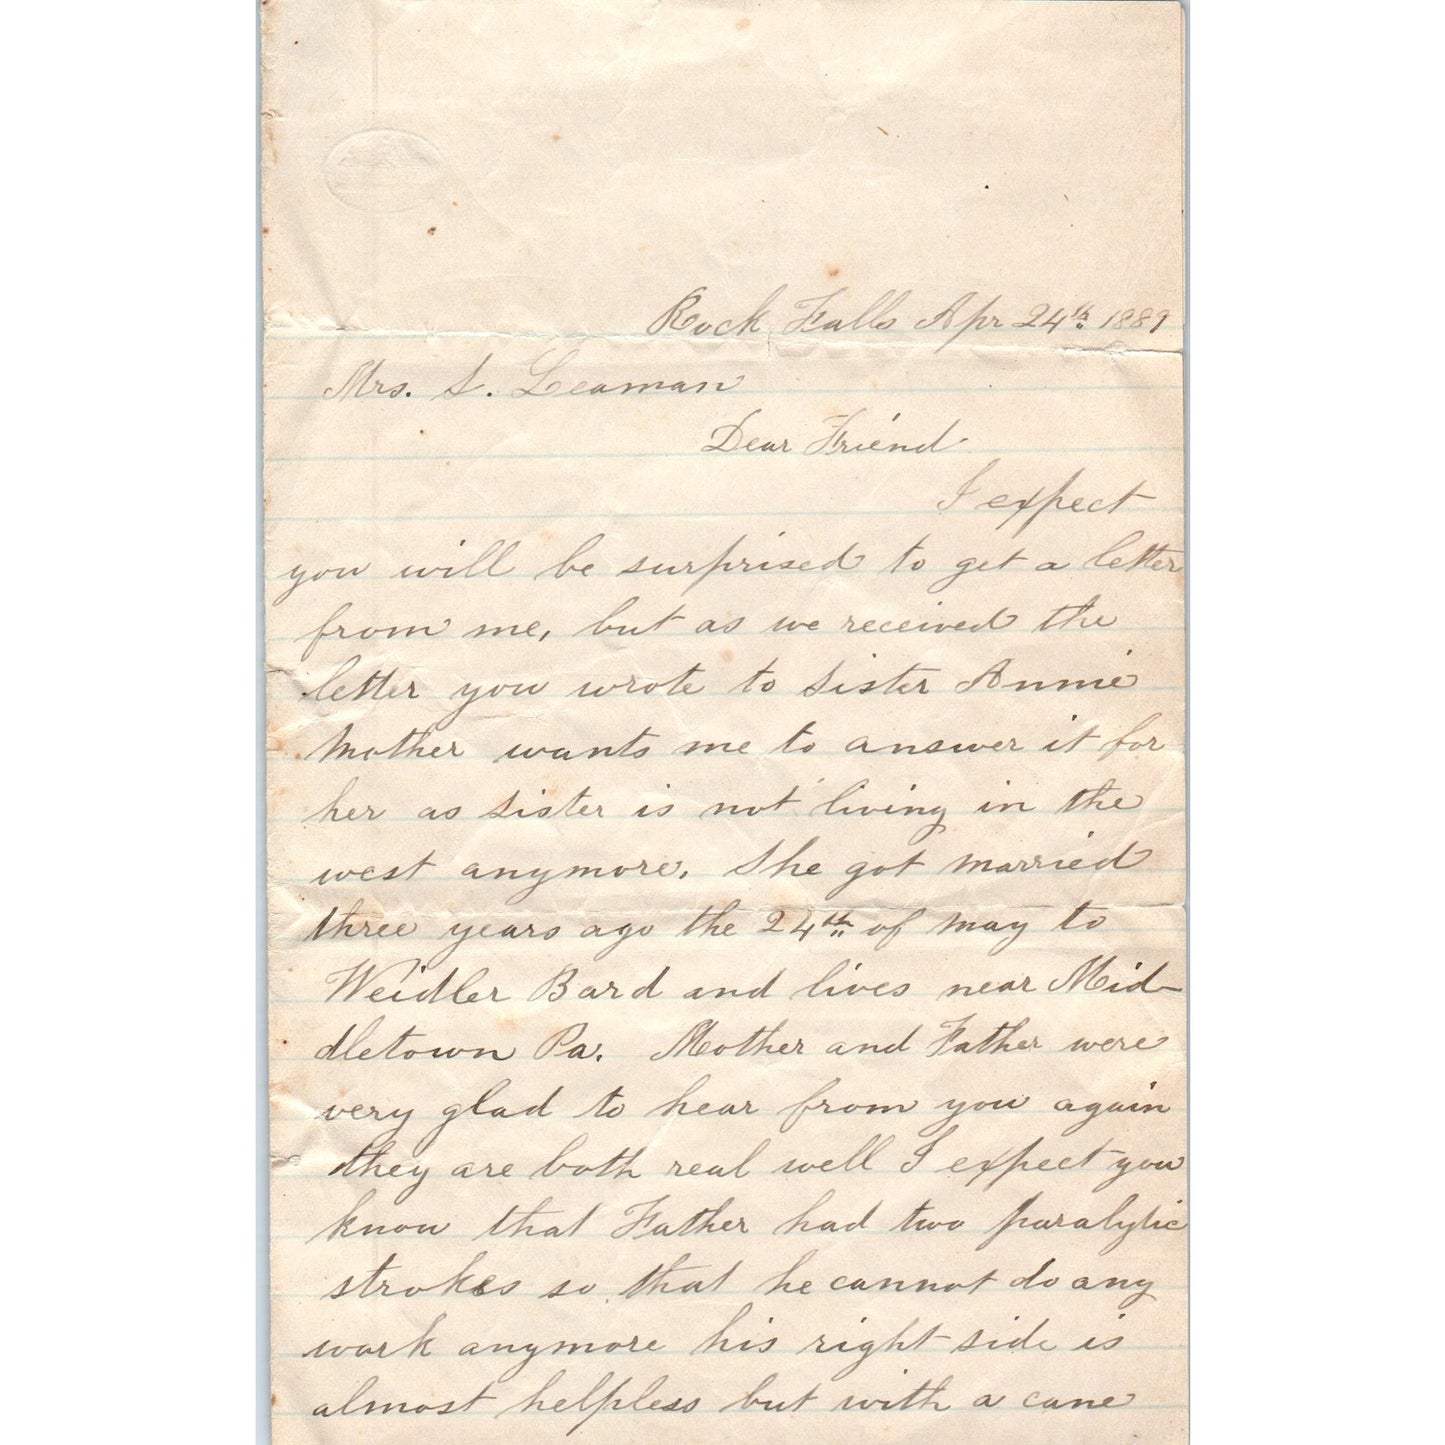 Rock Falls Apr 24th 1889
Mrs. S. Leaman
Dear Friend
I expect
you will be surprised to get a letter
from me, but as we received the
letter you wrote to Sister Annie
Mother wants me to answer it for
her as Sister is not living in the
west anymore. She got married
three years ago the 24th of May to
Weidler Bard and lives near Mid-
dletown Pa. Mother and Father were
very glad to hear from you again
they are both real well I expect you
know that Father had two paralytic
strokes so that he cannot do any
work anymore his right side is
almost helpless but with a cane